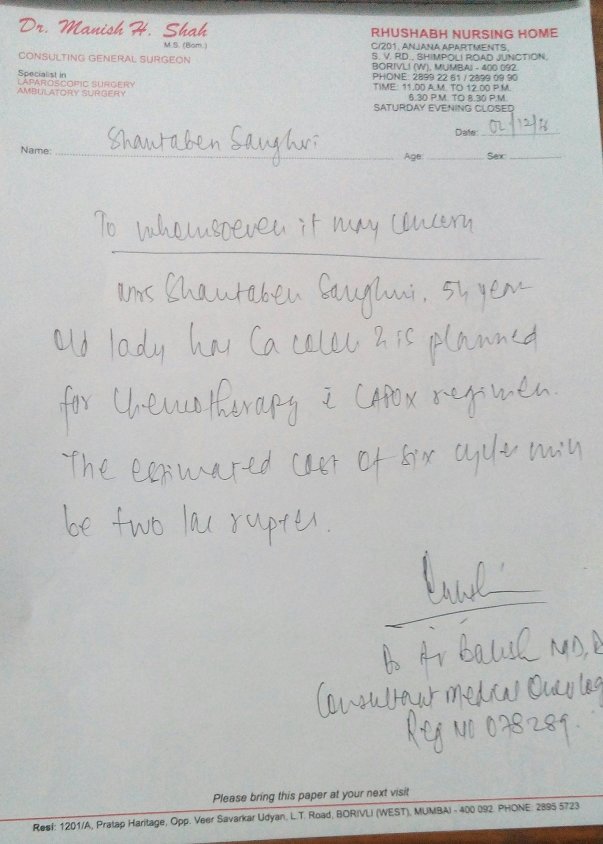 Dr. Manish H. Shah
M.S. (Bom.)
CONSULTING GENERAL SURGEON
Specialist in
LAPAROSCOPIC SURGERY
AMBULATORY SURGERY
RHUSHABH NURSING HOME
C/201, ANJANA APARTMENTS,
S. V. RD., SHIMPOLI ROAD JUNCTION,
BORIVLI (W), MUMBAI - 400 092.
PHONE: 2899 22 61 / 2899 09 90
TIME: 11.00 A.M. TO 12.00 P.M.
6.30 P.M. TO 8.30 P.M.
SATURDAY EVENING CLOSED
Date: 02/12/16
Name: Shantaben Sanghvi
Age: Sex:
To whomsoever it may concern
Mrs Shantaben Sanghvi, 54 year
old lady has Ca colon & is planned
for chemotherapy c̄ CAPOX regimen.
The estimated cost of six cycles will
be two lac rupees.
Dr
MD, D
Consultant Medical Oncolog
Reg No 078289.
Please bring this paper at your next visit
Resi: 1201/A, Pratap Haritage, Opp. Veer Savarkar Udyan, L.T. Road, BORIVLI (WEST), MUMBAI - 400 092 PHONE: 2895 5723